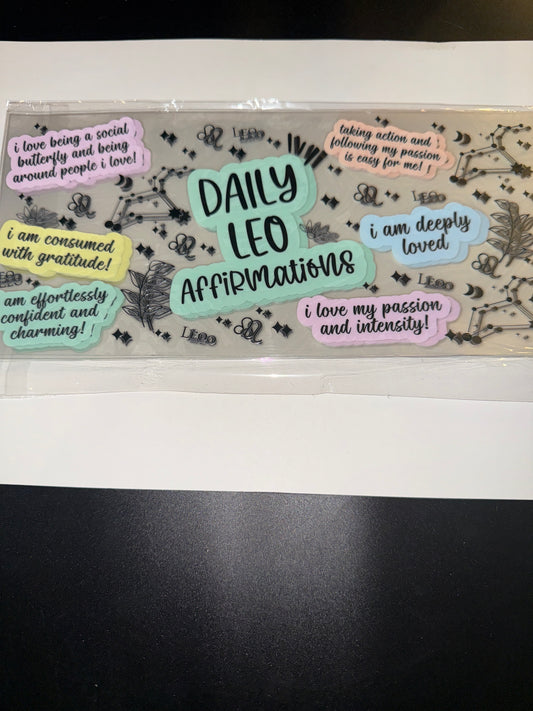 i love being a social
butterfly and being
around people i love!
Leo
taking action and
following my passion
is easy for me!
DAILY
LEO
AFFIRMATIONS
i am consumed
with gratitude!
i am deeply
loved
Leo
Leo
am effortlessly
confident and
charming!
i love my passion
and intensity!
Leo
Leo